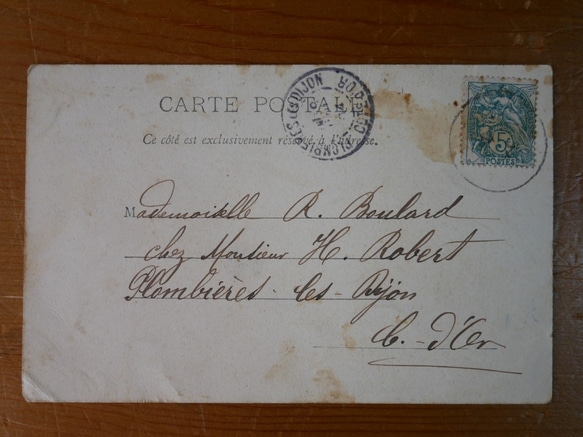 CARTE POSTALE
Ce côté est exclusivement réservé à l'adresse.
PLOMBIÈRES-LÈS-DIJON CÔTE-D'OR
5c
POSTES
Mademoiselle R. Boulard
chez Monsieur H. Robert
Plombières-les-Dijon
C.-d'Or